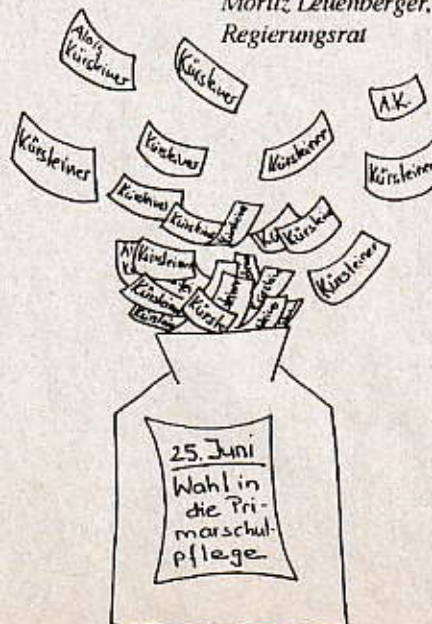 Moritz Leuenberger,
Regierungsrat
Alois
Kürsteiner
Kürsteiner
A.K.
Kürsteiner
Kürsteiner
Kürsteiner
Kürsteiner
Kürsteiner
Kürsteiner
Kürsteiner
Kürsteiner
Kürsteiner
25. Juni
Wahl in
die Pri-
marschul-
pflege